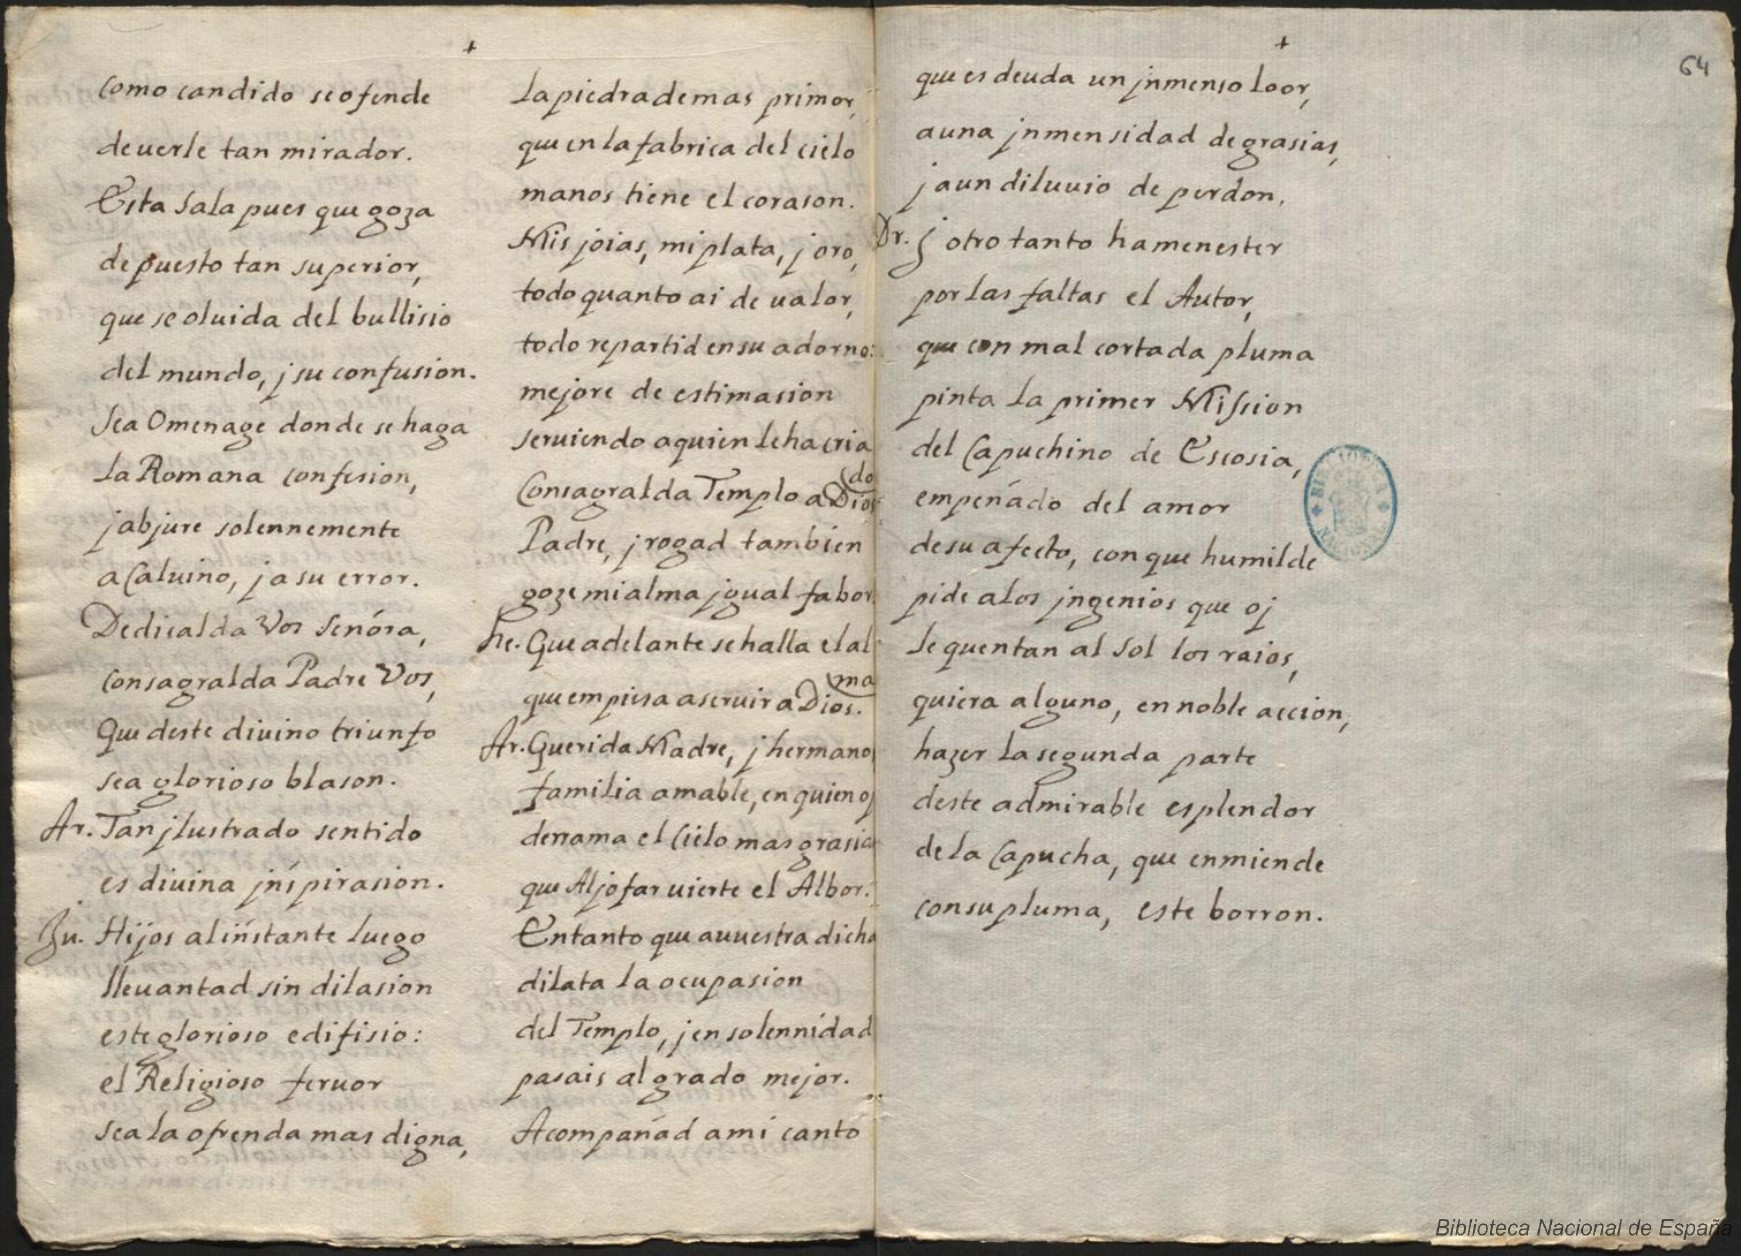 +
como candido se ofende
de uerle tan mirador.
Esta Sala pues que goza
de puesto tan superior,
que se oluida del bullisio
del mundo, j su confusion.
Sea Omenage donde se haga
la Romana confesion,
j abjure solennemente
a Caluino, j a su error.
Dedicalda Vos Señora,
consagralda Padre Vos,
Que deste diuino triunfo
sea glorioso blason.
Ar. Tan jlustrado sentido
es diuina jnspirasion.
Ju. Hijos al instante luego
lleuantad sin dilasion
este glorioso edifisio:
el Religioso feruor
sea la ofrenda mas digna,
la piedra de mas primor,
que en la fabrica del cielo
manos tiene el corason.
Mis joias, mi plata, j oro,
todo quanto ai de ualor,
todo repartid en su adorno:
mejore de estimasion
seruiendo a quien le ha cria
do
Consagralda Templo a Dios
Padre, j rogad tambien
goze mi alma jgual fabor.
he. Que adelante se halla el al
ma
que empiesa a seruir a Dios.
Ar. Querida Madre, j hermanos
familia amable, en quien oj
derrama el Cielo mas grasias
que Aljofar uierte el Albor.
En tanto que a uuestra dicha
dilata la ocupasion
del Templo, j en solennidad
pasais al grado mejor.
Acompañad a mi canto
+
64
que es deuda un jnmenso loor,
a una jnmensidad de grasias,
j a un diluuio de perdon.
Dr. j otro tanto ha menester
por las faltas el Autor,
que con mal cortada pluma
pinta la primer Mission
del Capuchino de Escosia,
empeñado del amor
de su afecto, con que humilde
pide a los jngenios que oj
se quentan al Sol los raios,
quiera alguno, en noble accion,
hazer la segunda parte
deste admirable esplendor
de la Capucha, que enmiende
con su pluma, este borron.
Biblioteca Nacional de España